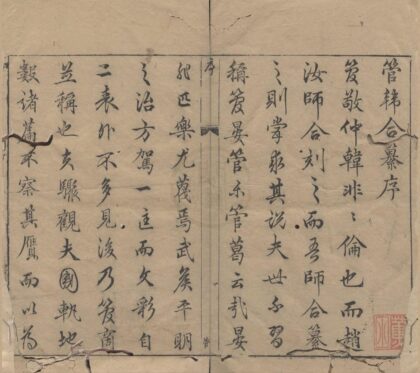 管韓合纂序
筦敬仲韓非〻倫也而趙
汝師合刻之而吾師合纂
之則嘗求其說夫世所習
稱筦晏管樂管葛云哉晏
序
非匹樂尤蔑焉武矦平明
之治方駕一匡而文彩自
二表外不多見後乃筦商
並稱也亦驟觀夫國軌地
數諸篇不察其贋而以為